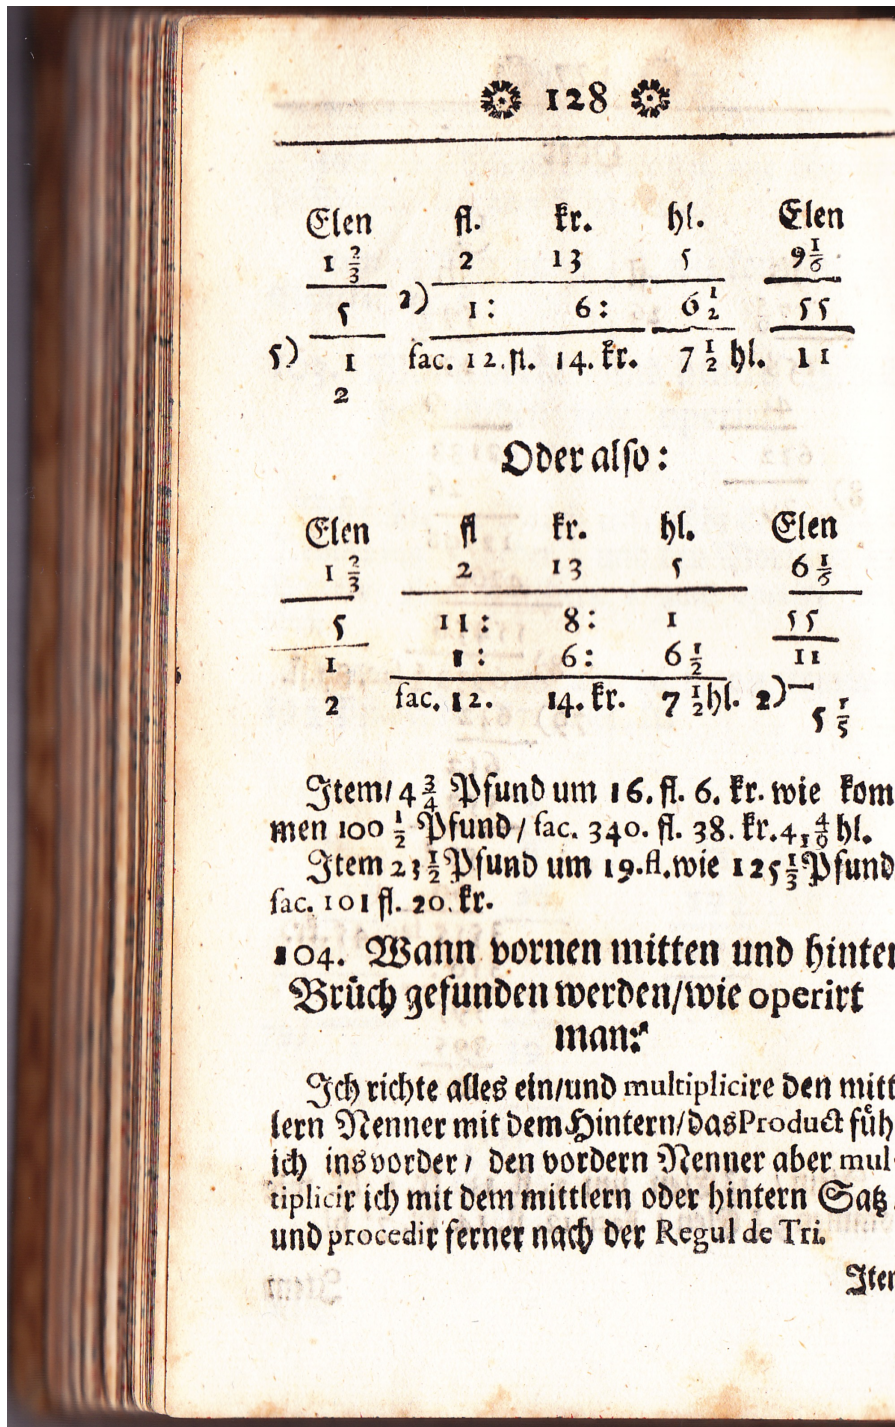 128
Elen fl. kr. hl. Elen
1 2/3 2 13 5 9 1/6
5 2) 1: 6: 6 1/2 55
5) 1 fac. 12. fl. 14. kr. 7 1/2 hl. 11
2
Oder also:
Elen fl kr. hl. Elen
1 2/3 2 13 5 6 1/6
5 11: 8: 1 55
1 1: 6: 6 1/2 11
2 fac. 12. 14. kr. 7 1/2 hl. 2)
5 1/5
Item/ 4 3/4 Pfund um 16. fl. 6. kr. wie kom
men 100 1/2 Pfund/ fac. 340. fl. 38. kr. 4, hl.
Item 23 1/2 Pfund um 19. fl. wie 125 1/3 Pfund
fac. 101 fl. 20. kr.
104. Wann vornen mitten und hinten
Brüch gefunden werden/wie operirt
man?
Ich richte alles ein/und multiplicire den mitt
lern Nenner mit dem Hintern/das Product füh
ich ins vorder/ den vordern Nenner aber mul-
tiplicir ich mit dem mittlern oder hintern Satz
und procedir ferner nach der Regul de Tri.
Iter